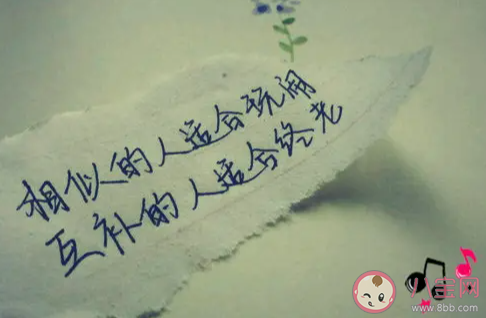 相似的人适合玩闹
互补的人适合终老
八宝网
www.8bb.com